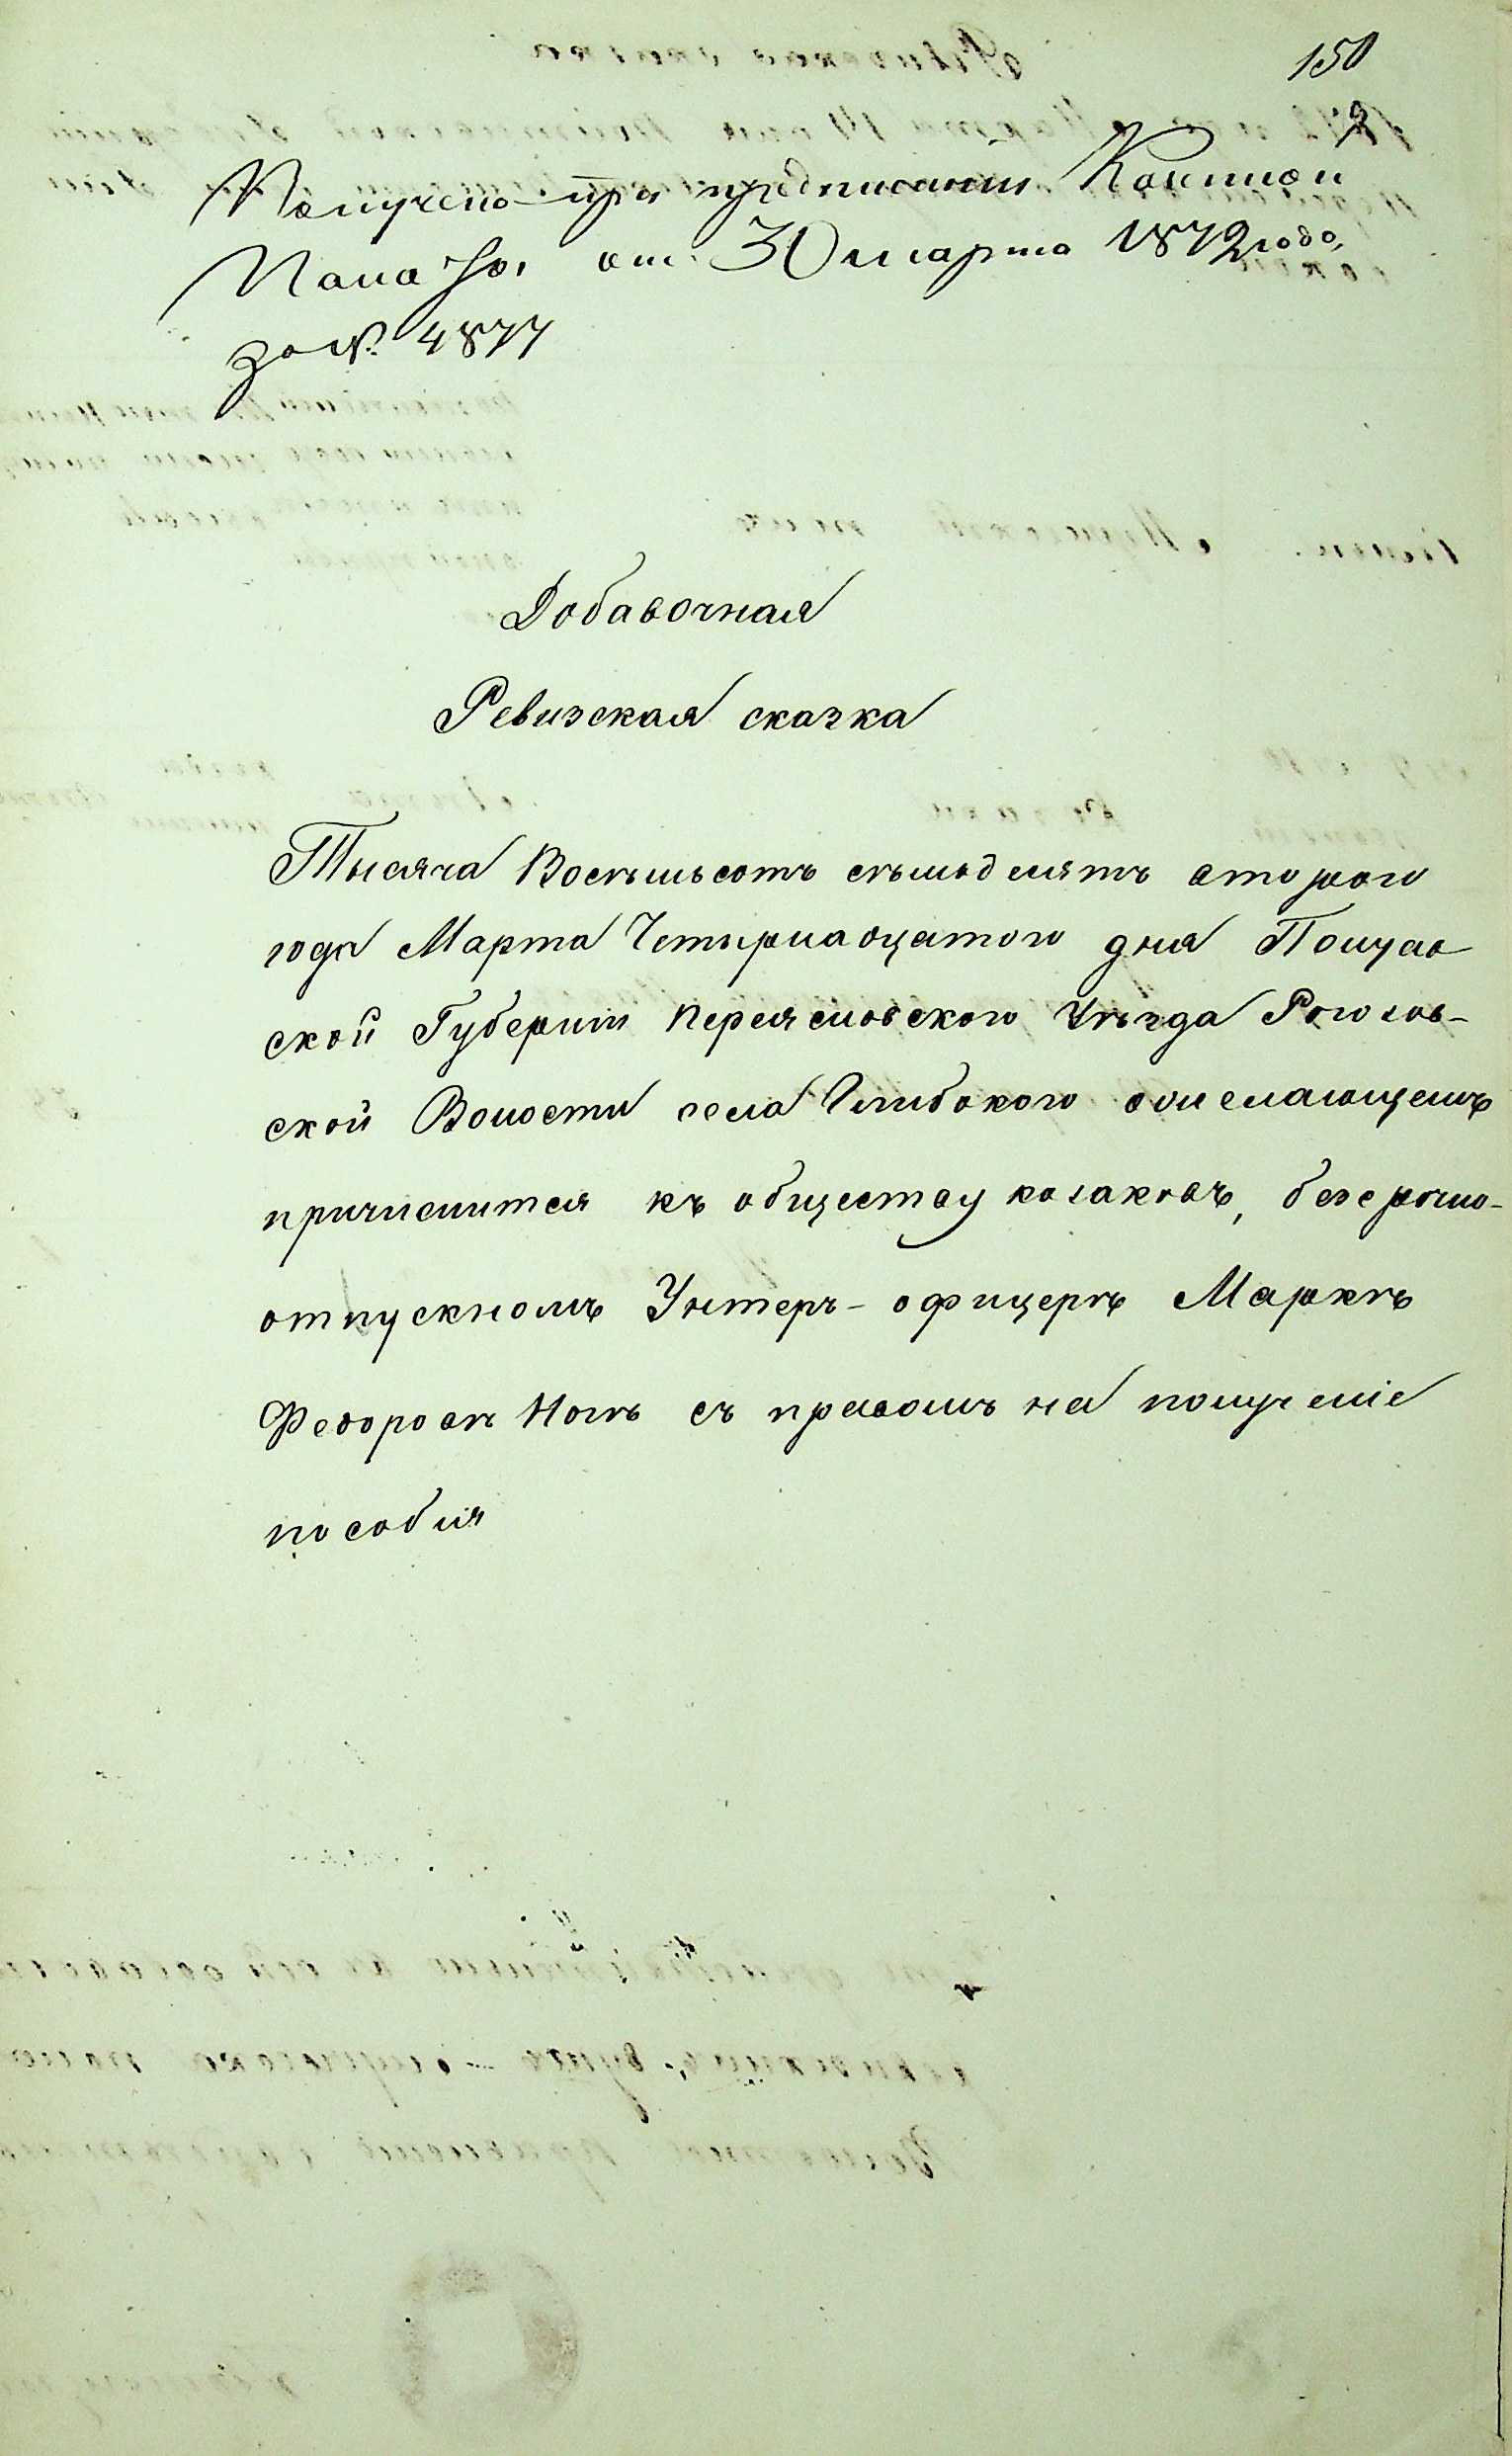 150
Получено при предписании Казенной
Палаты от 30 марта 1872 года,
за №. 4877
Добавочная
Ревизская сказка
Тысяча Восѣмьсотъ сѣмьдесятъ второго
года Марта Четырнадцатого дня Полтав
ской Губерніи Переяславского Уѣзда Рогозов-
ской Волости села Глибокого о желающемъ
причислится къ обществу козаковъ, безсрочно-
отпускномъ Унтеръ-офицерѣ Маркѣ
Федоровѣ Ногѣ съ правомъ на полученіе
пособия